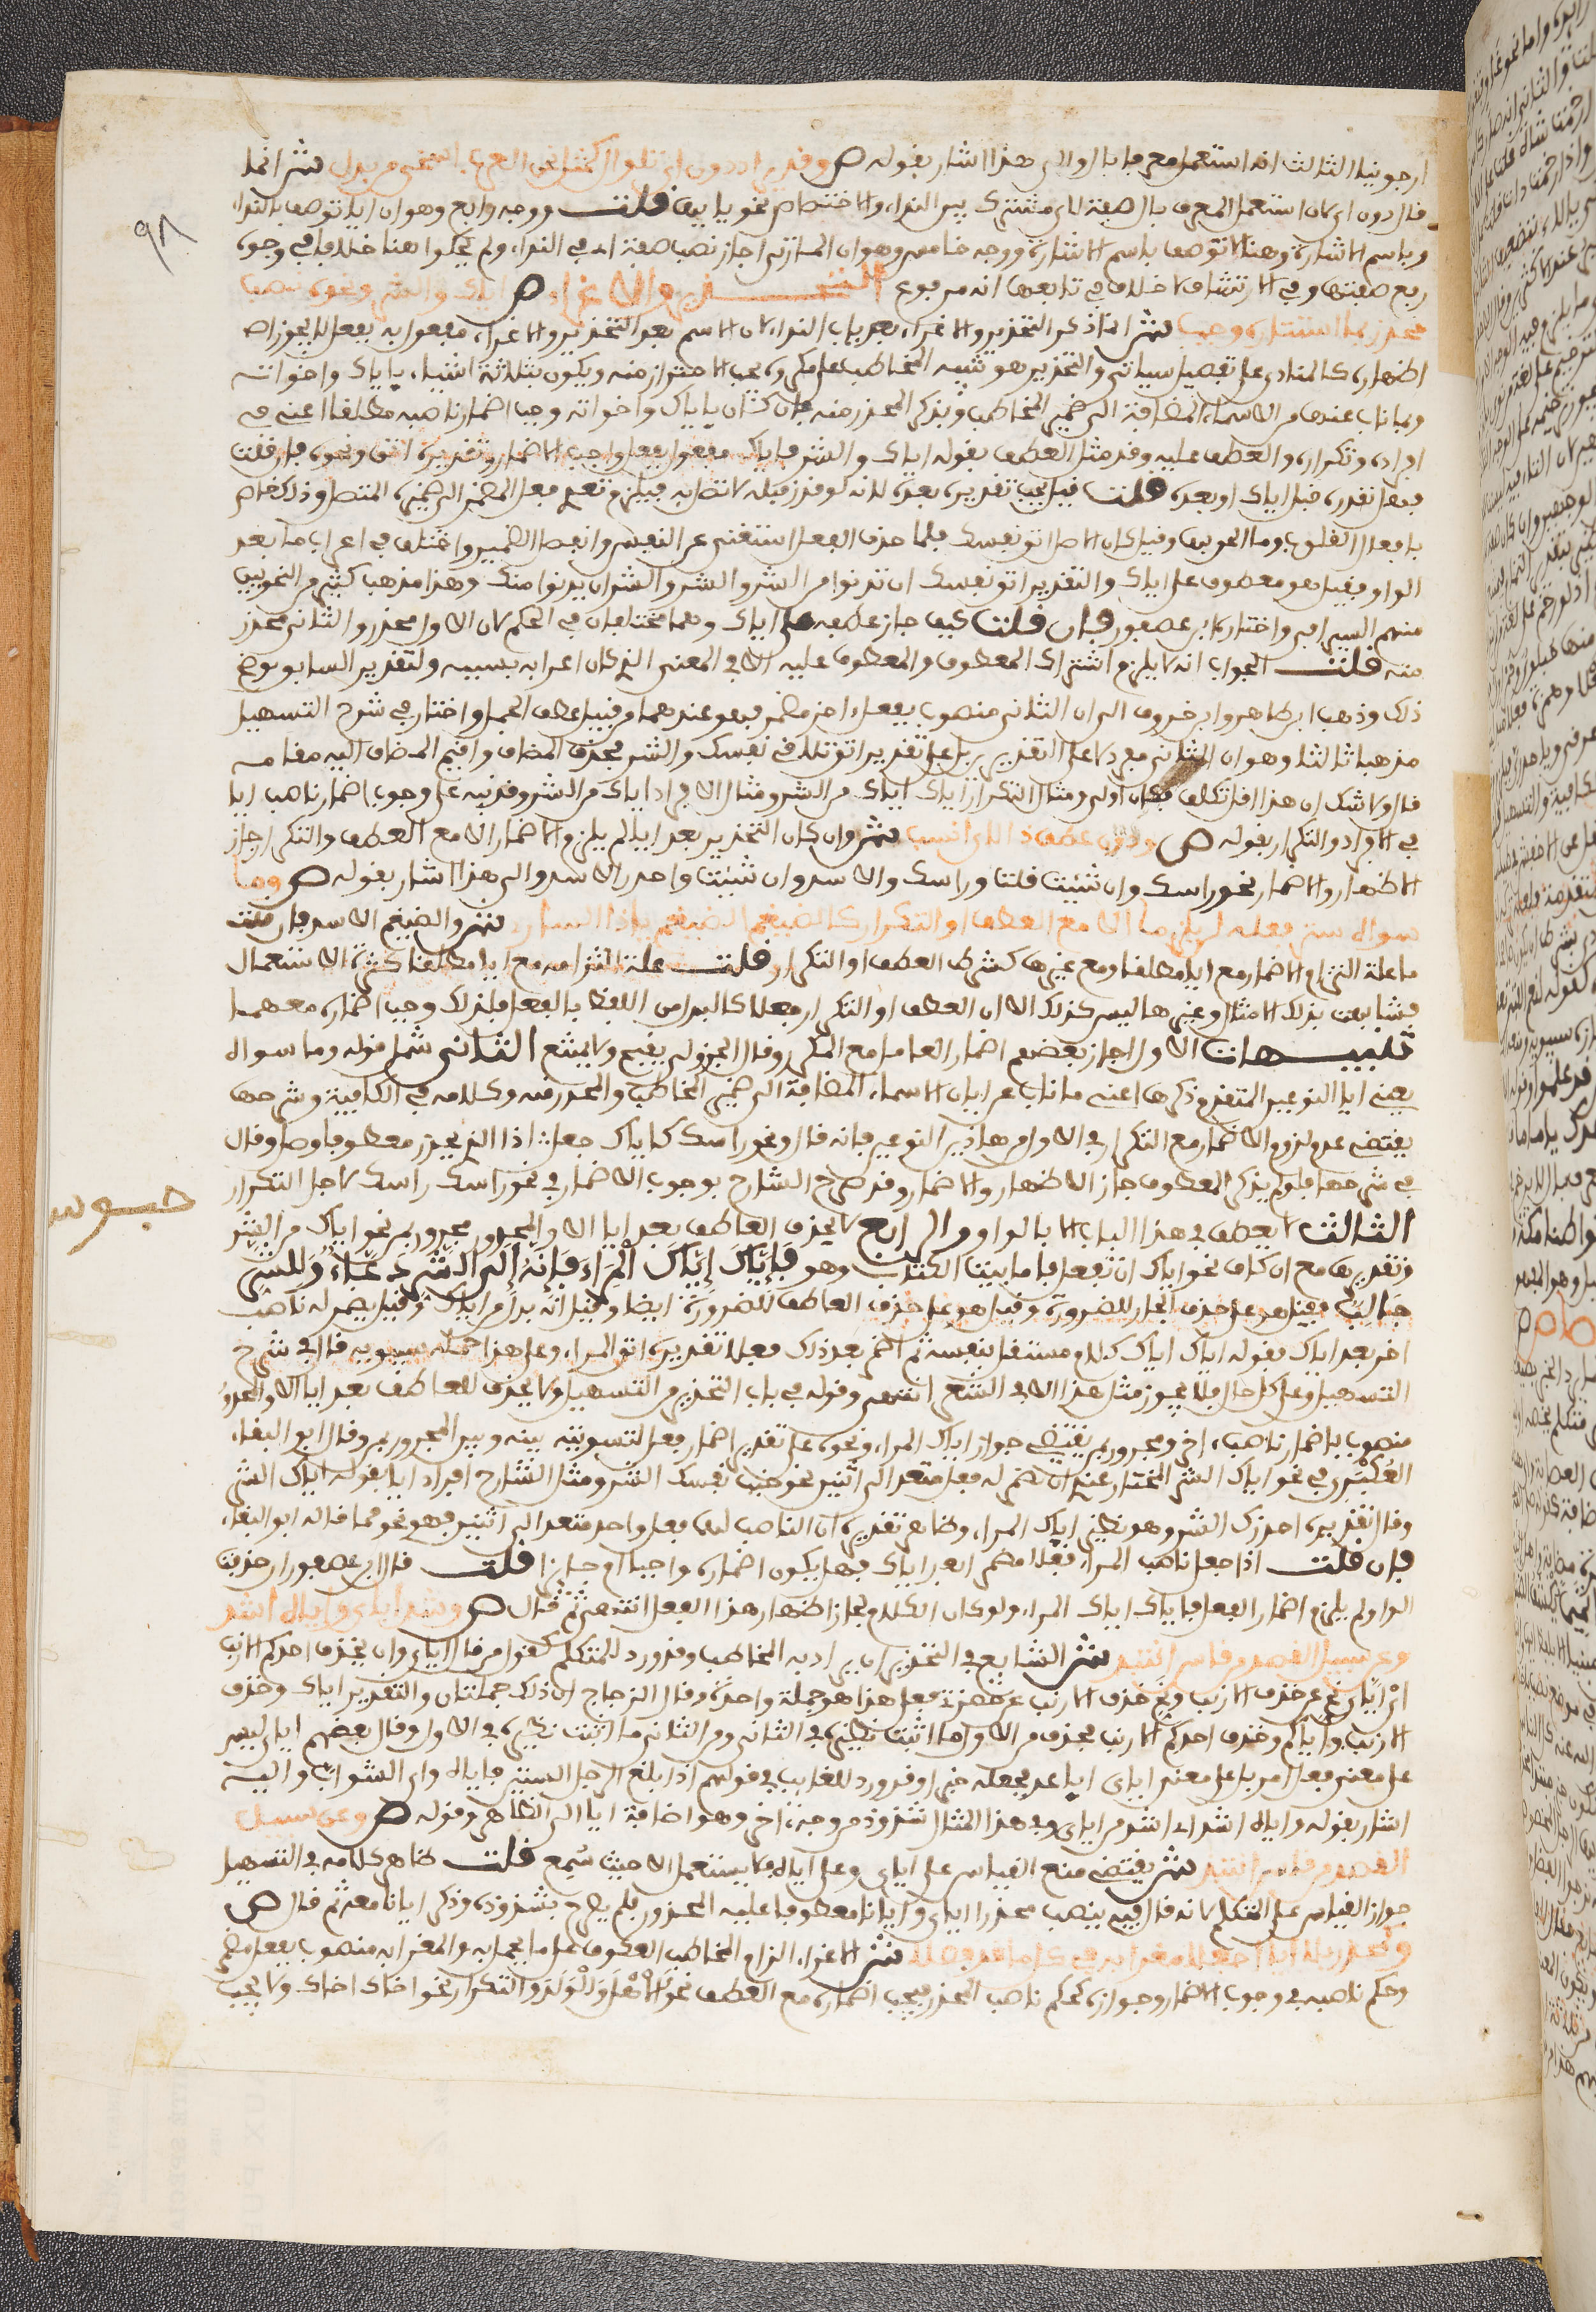 ارجونيا الثالث انه استعمل مع ما بال والى هذا اشار بقوله ص وقد يرى ذا دون اي تلو ال كمثل نحن العرب اسخى من بذل ش انما
قال دون اي لان استعمال المعرف بال صفة لاي مشترك بين النداء والاختصاص نحو يا ايها قلت ووجه رابع وهو ان ايا توصف في النداء
وباسم الاشارة وهنا لا توصف باسم الاشارة ووجه خامس وهو ان المازني اجاز نصب صفة اي في النداء ولم يحكوا هنا خلافا في وجوب
رفع صفتها وفي الارتشاف لا خلاف في تابعها انه مرفوع التحذير والاغراء ص اياك والشر ونحوه نصب
محذر بما استتاره وجب ش انما ذكر التحذير والاغراء بعد باب النداء لان الاسم بعد التحذير والاغراء مفعول به بفعل لا يجوز
اظهاره كالمنادى على تفصيل سياتي والتحذير هو تنبيه المخاطب على مكروه يجب الاحتراز منه ويكون بثلاثة اشياء باياك واخواته
وبما ناب عنها من الاسماء المضافة الى ضمير المخاطب وبذكر المحذر منه فان كان باياك واخواته وجب اضمار ناصبه مطلقا اعني في
افراده وتكراره والعطف عليه وقد مثل العطف بقوله اياك والشر فاياك مفعول بفعل واجب الاضمار وتقديره اتق ونحوه فان قلت
فهل تقدره قبل اياك او بعده قلت قيل يجب تقديره بعده لانه لو قدر قبله لاتصل به فيلزم تعدي فعل المضمر الى ضميره المتصل وذلك خاص
بافعال القلوب وما الحق بها وقيل كان الاصل اتق نفسك فلما حذف الفعل استغني عن النفس وانفصل الضمير واختلف في اعراب ما بعد
الواو فقيل هو معطوف على اياك والتقدير اتق نفسك ان تدنو من الشر والشر ان يدنو منك وهذا مذهب كثير من النحويين
منهم السيرافي واختاره ابن عصفور فان قلت كيف جاز عطفه على اياك وهما مختلفان في الحكم لان الاول محذر والثاني محذر
منه قلت الجواب انه لا يلزم اشتراك المعطوف والمعطوف عليه الا في المعنى الذي كان اعرابه بسببه والتقدير السابق يوضح
ذلك وذهب ابن طاهر وابن خروف الى ان الثاني منصوب بفعل اخر مضمر فهو عندهما من قبيل عطف الجمل واختار في شرح التسهيل
مذهبا ثالثا وهو ان الثاني معطوف لا على التقدير بل على تقدير اتق تلاقي نفسك والشر فحذف المضاف واقيم المضاف اليه مقامه
قال ولا شك ان هذا اقل تكلفا فكان اولى ومثال التكرار اياك اياك من الشر ومثال الافراد اياك من الشر وقد نبه على وجوب اضمار ناصب ايا
في الافراد والتكرار بقوله ص ودون عطف ذا لايا انسب ش وان كان التحذير بغير ايا لم يلزم الاضمار الا مع العطف والتكرار جاز
الاظهار والاضمار نحو راسك وان شئت قلت ق راسك والاسد وان شئت واحذر الاسد والى هذا اشار بقوله ص وما
سواه ستر فعله لن يلزما الا مع العطف او التكرار كالضيغم الضيغم يا ذا الساري ش والضيغم الاسد فان قلت
ما علة التزام الاضمار مع ايا مطلقا ومع غيرها بشرط العطف او التكرار قلت علة التزامه مع ايا مطلقا كثرة الاستعمال
فشابهت بذلك الامثال وغيرها ليس كذلك الا ان العطف او التكرار جعلا كالبدل من اللفظ بالفعل فلذلك وجب اضماره معهما
تنبيهات الاول اجاز بعضهم اضمار العامل مع المكرر وقال الجزولي يقبح ولا يمتنع الثاني شمل قوله وما سواه
يعني ايا النوعين المتقدم ذكرهما اعني ما ناب عن ايا من الاسماء المضافة الى ضمير المخاطب والمحذر منه وكلامه في الكافية وشرحها
يقتضي عدم لزوم الاضمار مع التكرار في الاول من هاذين النوعين فانه قال ونحو راسك كاياك جعل اذا الذي يحذر معطوفا وصل وقال
في شرحها فلو لم يذكر المعطوف جاز الاظهار والاضمار وقد صرح الشارح بوجوب الاضمار في نحو راسك راسك لاجل التكرار
الثالث لا يعطف في هذا الباب الا بالواو الرابع لا يحذف العاطف بعد ايا الا والمحذور مجرور بمن نحو اياك من الشر
وتقديرها مع ان كاف نحو اياك ان تفعل فاما بيت الكتاب وهو فَإِيَّاكَ إِيَّاكَ الْمِرَاءَ فَإِنَّهُ إِلَى الشَّرِّ دَعَّاءٌ وَلِلشَّرِّ
جَالِبُ فقيل هو على حذف الجار للضرورة وقيل هو على حذف العاطف للضرورة ايضا وقيل انه بدل من اياك وقيل يضمر له ناصب
اخر بعد اياك فقوله اياك اياك كلام مستقل بنفسه ثم اضمر بعد ذلك فعلا تقديره اتق المراء وعلى هذا حمله سيبويه قال في شرح
التسهيل وعلى كل حال فلا يجوز مثل هذا الا في الشعر انتهى وقوله في باب التحذير من التسهيل ولا يحذف العاطف بعد ايا الا والمحذور
منصوب باضمار ناصب اخر ومجرور بمن يقتضي جواز اياك المراء ونحوه على تقدير اضمار فعل لتسويته بينه وبين المجرور بمن وقال ابو البقاء
العُكْبَرِي في نحو اياك الشر المختار عندي ان يضمر له فعل متعد الى اثنين نحو جنب نفسك الشر ومثل الشارح افراد ايا بقوله اياك الشر
وقال تقديره احذرك الشر وهو نظير اياك المراء وظاهر تقديره ان الناصب لهما فعل واحد متعد الى اثنين فهو نحو مما قاله ابو البقاء
فان قلت اذا جعل ناصب المراء فعلا مضمرا بعد اياك فهل يكون اضماره واجبا ام جائزا قلت قال ابن عصفور ان حذفت
الواو لم يلزم اضمار الفعل فاياك اياك المراء ولو كان الكلام لجاز اظهار هذا الفعل انتهى ثم قال ص وشذ اياي واياه اشذ
وعن سبيل القصد من قاس انتبذ ش الشايع في التحذير ان يراد به المخاطب وقد ورد للمتكلم كقول من قال اياي وان يحذف احدكم الارنب
اي اياي نح عن حذف الارنب ونح حذف الارنب عن حضرتي فعلى هذا هو جملة واحدة وقال الزجاج ان ذلك جملتان والتقدير اياي وحذف
الارنب واياكم وحذف احدكم الارنب فحذف من الاول ما اثبت نظيره في الثاني ومن الثاني ما اثبت نظيره في الاول وقال بعضهم اياي ليس
على معنى فعل امر بل على معنى اياي اباعد يجعله خبرا وقد ورد للغائب في قولهم اذا بلغ الرجل الستين فاياه وايا الشواب واليه
اشار بقوله واياه اشذ اي اشذ من اياي وفي هذا المثال شذوذ من وجه اخر وهو اضافة ايا الى الظاهر وقوله ص وعن سبيل
القصد من قاس انتبذ ش يقتضي منع القياس على اياي وعلى اياه فلا يستعمل الا حيث سُمع قلت ظاهر كلامه في التسهيل
جواز القياس على المتكلم لانه قال فيه ينصب محذرا اياي وايانا معطوفا عليه المحذور فلم يصرح بشذوذه وذكر ايانا معه ثم قال ص
وكمحذر بلا ايا اجعلا مغرى به في كل ما قد فصلا ش الاغراء الزام المخاطب العكوف على ما يحمد به والمغرى به منصوب بفعل مضمر
وحكم ناصبه في وجوب الاضمار وجوازه كحكم ناصب المحذر فيجب اضماره مع العطف نحو الْأَهْلَ وَالْوَلَدَ والتكرار نحو اخاك اخاك ولا يجب
٩٨
حبوس